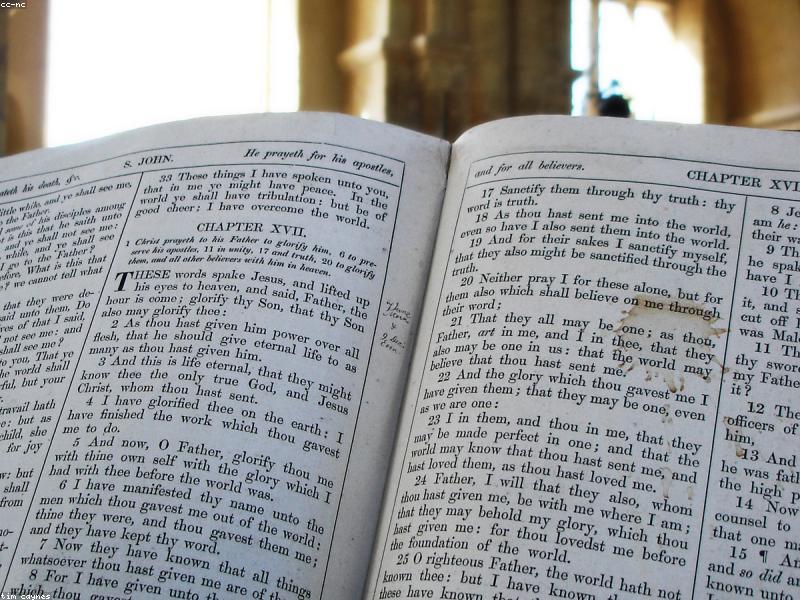 cc-nc
ateth his death, &c. S. JOHN. He prayeth for his apostles,
little while, and ye shall see me,
the Father.
of his disciples among
is this that he saith unto
and ye shall not see me:
while, and ye shall see
I go to the Father?
fore, What is this that
we cannot tell what
that they were de-
said unto them, Do
lves of that I said,
not see me: and
shall see me?
you, That ye
the world shall
ful, but your
travail hath
but as
child, she
for joy
but
shall
from
33 These things I have spoken unto you,
that in me ye might have peace. In the
world ye shall have tribulation: but be of
good cheer; I have overcome the world.
CHAPTER XVII.
1 Christ prayeth to his Father to glorify him, 6 to pre-
serve his apostles, 11 in unity, 17 and truth, 20 to glorify
them, and all other believers with him in heaven.
THESE words spake Jesus, and lifted up
his eyes to heaven, and said, Father, the
hour is come; glorify thy Son, that thy Son
also may glorify thee:
2 As thou hast given him power over all
flesh, that he should give eternal life to as
many as thou hast given him.
3 And this is life eternal, that they might
know thee the only true God, and Jesus
Christ, whom thou hast sent.
4 I have glorified thee on the earth: I
have finished the work which thou gavest
me to do.
5 And now, O Father, glorify thou me
with thine own self with the glory which I
had with thee before the world was.
6 I have manifested thy name unto the
men which thou gavest me out of the world:
thine they were, and thou gavest them me;
and they have kept thy word.
7 Now they have known that all things
whatsoever thou hast given me are of thee.
8 For I have given unto
which thou gavest
and for all believers. CHAPTER XVII
17 Sanctify them through thy truth: thy
word is truth.
18 As thou hast sent me into the world,
even so have I also sent them into the world.
19 And for their sakes I sanctify myself,
that they also might be sanctified through the
truth.
20 Neither pray I for these alone, but for
them also which shall believe on me through
their word;
21 That they all may be one; as thou,
Father, art in me, and I in thee, that they
also may be one in us: that the world may
believe that thou hast sent me.
22 And the glory which thou gavest me I
have given them; that they may be one, even
as we are one:
23 I in them, and thou in me, that they
may be made perfect in one; and that the
world may know that thou hast sent me, and
hast loved them, as thou hast loved me.
24 Father, I will that they also, whom
thou hast given me, be with me where I am;
that they may behold my glory, which thou
hast given me: for thou lovedst me before
the foundation of the world.
25 O righteous Father, the world hath not
known thee: but I have known
these have known that
am he:
their wa
9 Th
he spak
have I
10 Th
it, and
cut off
was Malc
11 Th
thy sword
my Father
it?
12 The
officers of
him,
13 And
he was fath
the high p
14 Now
counsel to
that one ma
15 ¶ And
and so did an
known unto
tim caynes